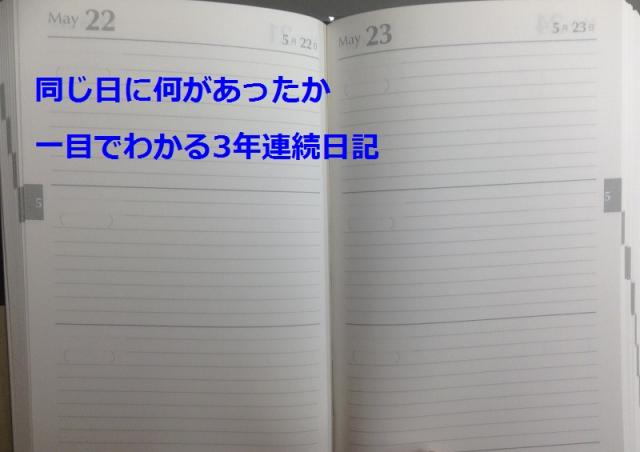 May 22
5月 22日
May 23
5月 23日
同じ日に何があったか
一目でわかる3年連続日記
5
5